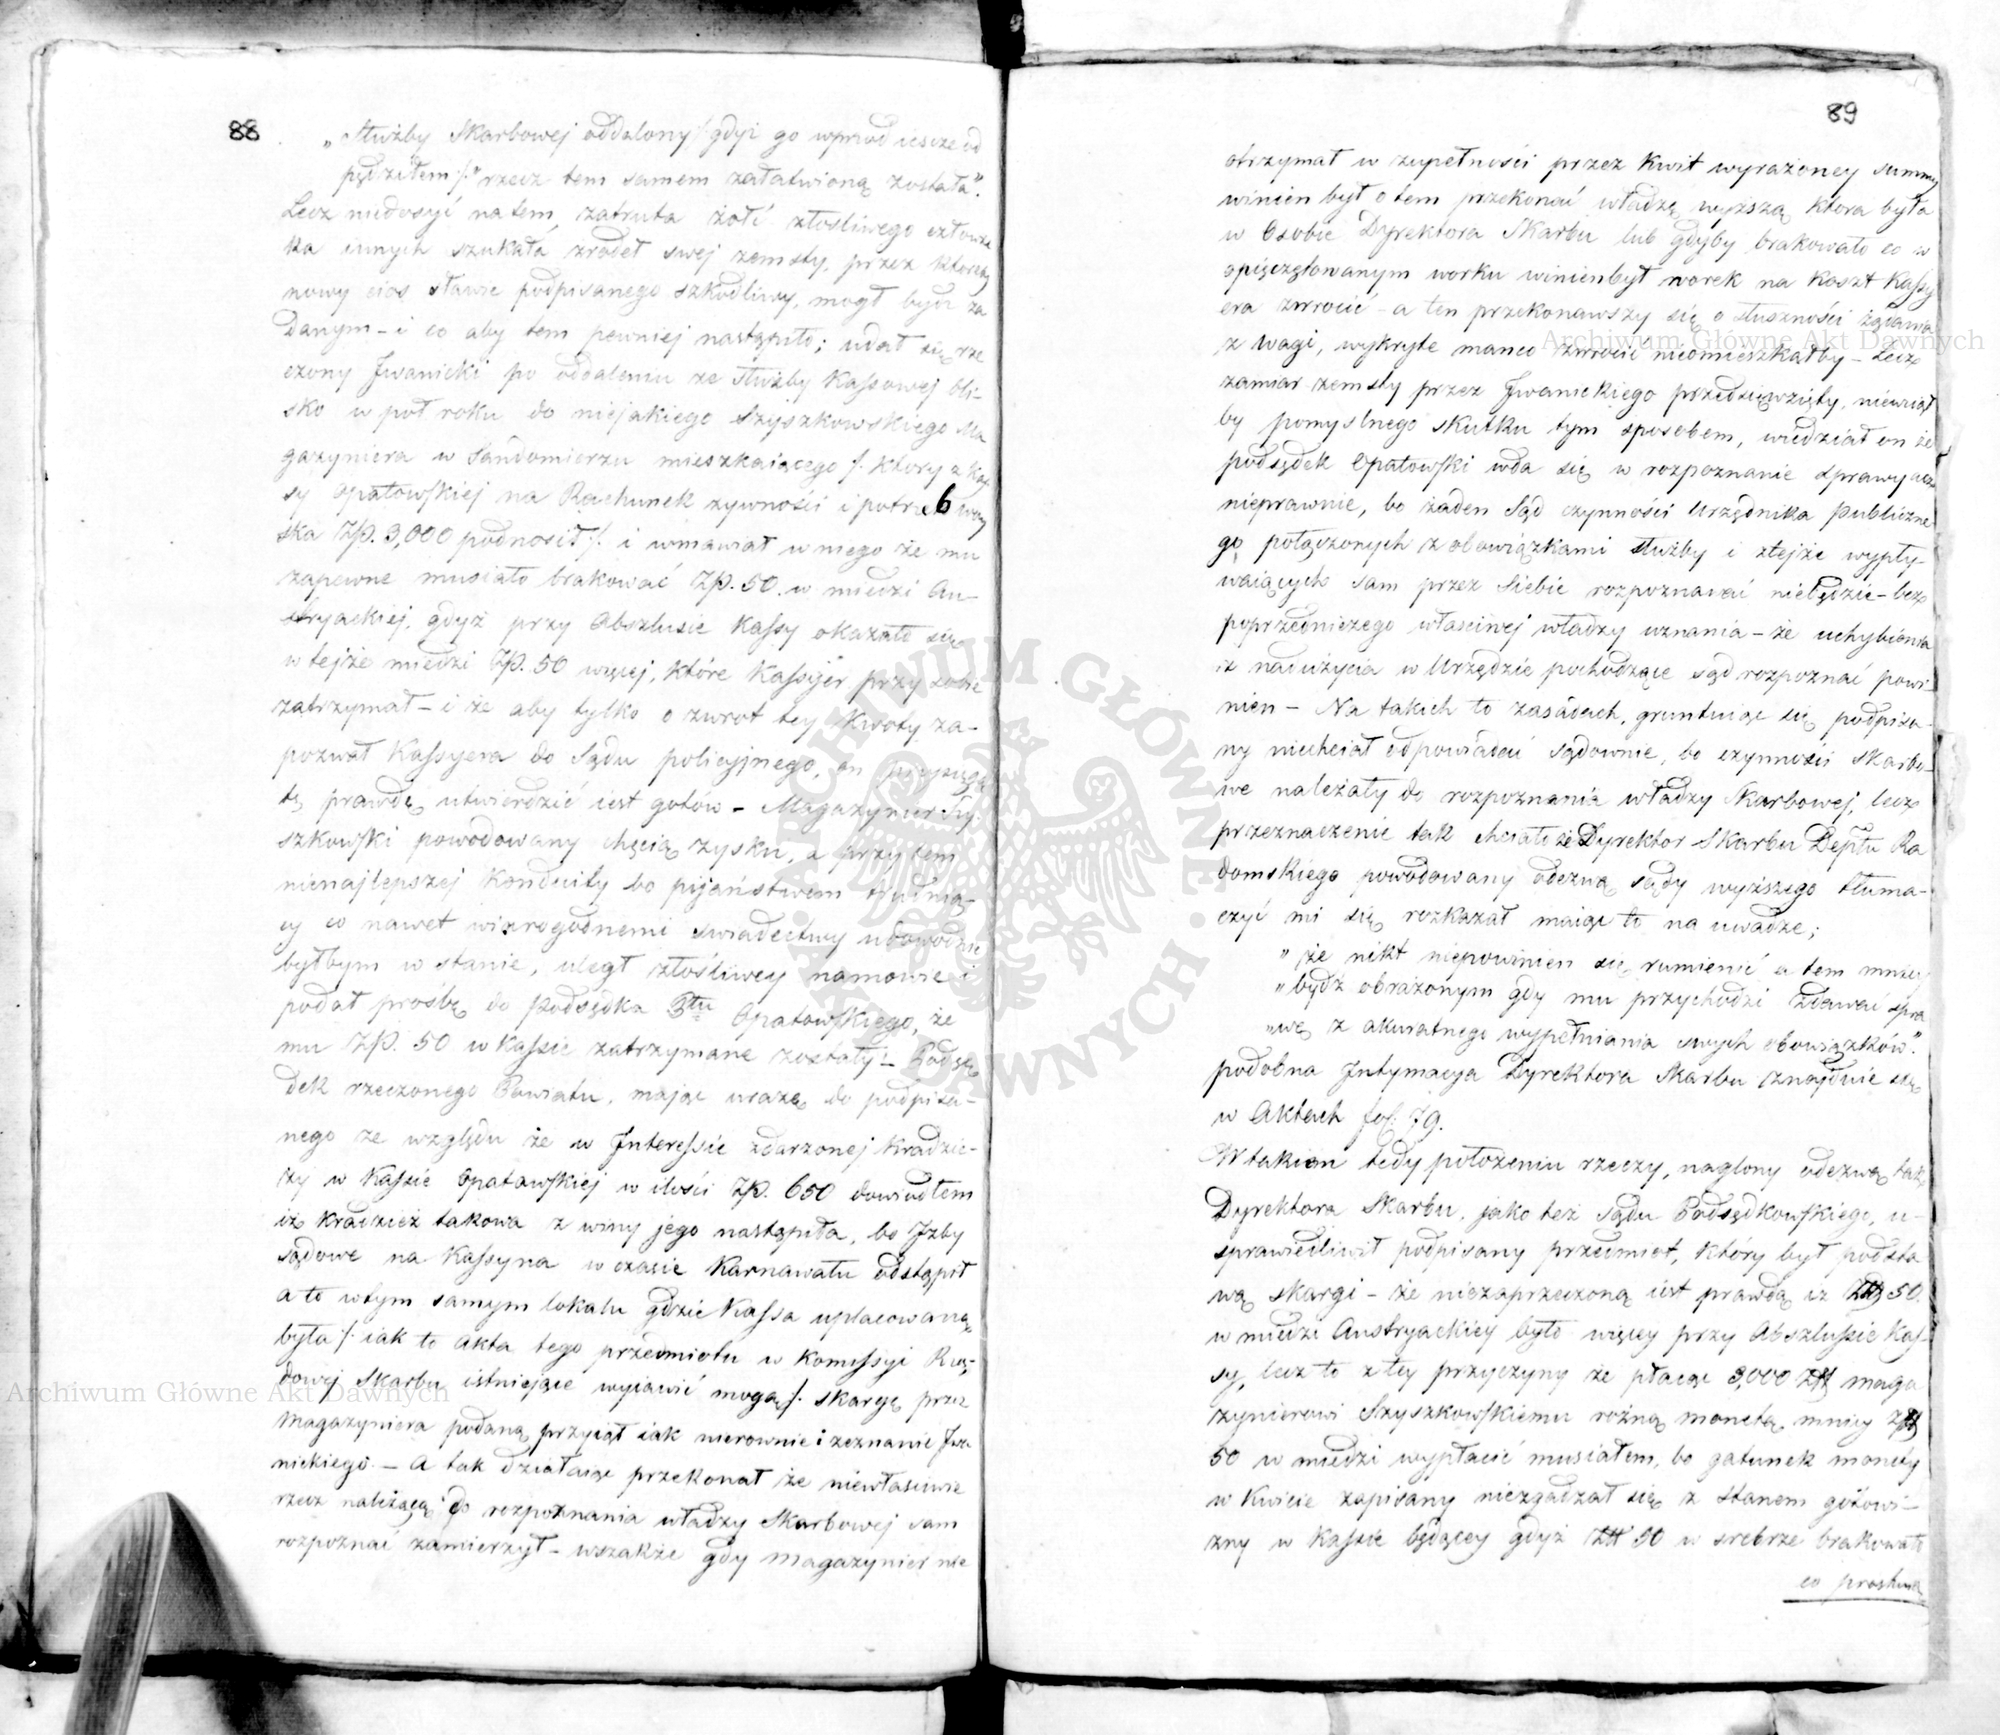 88
„Służby Skarbowej oddalony /: gdyż go wprzod ieszcze od
pędziłem :/ rzecz tem samem załatwioną została”.
Lecz niedosyć na tem, zatruta żołć złosliwego człowie
ka innych szukała zrodeł swej zemsty, przez ktoreby
nowy cios sławie podpisanego szkodliwy, mogł bydź za
danym – i co aby tem pewniej nastąpiło; udał się rze
czony Jwanicki po oddaleniu ze służby Kassowej bli-
sko w poł roku do niejakiego Szyszkowskiego Ma
gazyniera w Sandomierzu mieszkaiącego /: ktory z Kas
sy Opatowskiej na Rachunek zywności i potrzeb woy
ska Złp. 3,000 podnosił :/ i wmawiał w niego że mu
zapewne musiało brakować Złp. 50. w miedzi Au-
stryackiej, gdyż przy Abszlusie Kassy okazało się
w tejże miedzi Złp. 50 więcej, które Kassyer przy sobie
zatrzymał – i że aby tylko o zwrot tey Kwoty za-
pozwał Kassyera do Sądu policyjnego, on przysięgą
tę prawdę utwierdzić iest gotów – Magazynier Szy-
szkowski powodowany chęcią zysku, a przytem
nienajlepszej Konduity bo pijaństwem trudnią-
cy co nawet wiarogodnemi swiadectwy udowodnić
byłbym w stanie, uległ złośliwey namowie i
podał prośbę do Podsędka Pttu Opatowskiego, że
mu Złp. 50 w Kassie zatrzymane zostały – Podsę
dek rzeczonego Powiatu, mając urazę do podpisa-
nego ze względu że w Jnteressie zdarzonej Kradzie-
ży w Kassie Opatowskiej w ilości Złp. 650 dowiodłem
iż Kradzież takowa z winy jego nastąpiła, bo Jzby
sądowe na Kassyna w czasie Karnawału odstąpił
a to w tym samym lokalu gdzie Kassa uplacowaną
była /: iak to Akta tego przedmiotu w Komissyi Rzą-
dowej Skarbu istniejące wyiawić mogą :/ skargę przez
Magazyniera podaną przyiął iak nierownie i zeznanie Jwa
nickiego – A tak działaiąc przekonał że niewłasciwie
rzecz należącą do rozpoznania władzy Skarbowej sam
rozpoznać zamierzył – wszakże gdy Magazynier nie
89
otrzymał w zupełności przez Kwit wyrażoney summy
winien był o tem przekonać władzę wyższą ktora była
w Osobie Dyrektora Skarbu lub gdyby brakowało co w
opięczętowanym worku winien był worek na koszt Kassy
era zwrocić – a ten przekonawszy się o słuszności żądania
z wagi, wykryte manco zwrocić nieomieszkałby – Lecz
zamiar zemsty przez Jwanickiego przedsięwzięty, niewziął
by pomyslnego skutku tym sposobem, wiedział on że
podsędek Opatowski wda się w rozpoznanie sprawy
nieprawnie, bo żaden Sąd czynności Urzędnika publiczne
go połączonych z obowiązkami służby i ztejże wypły-
waiących sam przez siebie rozpoznawać niebędzie – bez
poprzedniczego własciwej władzy uznania – że uchybienia
iż nadużycia w Urzędzie pochodzące sąd rozpoznać powi-
nien – Na takich to zasadach, gruntuiąc się podpisa-
ny niechciał odpowiadać sądownie, bo czynności Skarbo-
we należały do rozpoznania władzy Skarbowej, lecz
przeznaczenie tak chciało że Dyrektor Skarbu Deptu Ra
domskiego powodowany odezwą sądu wyższego tłuma-
czyć mi się rozkazał maiąc to na uwadze;
„że nikt niepowinien się rumienić a tem mniej
„bydź obrażonym gdy mu przychodzi zdawać spra
„wę z akuratnego wypełniania swych obowiązków.”
podobna Jntymacya Dyrektora Skarbu znajduie się
w Aktach fol. 79.
W takiem tedy położeniu rzeczy, naglony odezwą tak
Dyrektora Skarbu, jako też Sądu Podsędkowskiego, u-
sprawiedliwił podpisany przedmiot, który był podsta
wą skargi – że niezaprzeczoną iest prawdą iż Złł 50.
w miedzi Austryackiey było więcey przy Abszlussie Kas-
sy, lecz to z tey przyczyny że płacąc 3,000 Złł maga
zynierowi Szyszkowskiemu rożną monetą, mniey Złł
50 w miedzi wypłacić musiałem, bo gatunek monety
w Kwicie zapisany niezgadzał się z Stanem gotowi-
zny w Kassie będącey gdyż Złł 50 w srebrze brakowało
co prostuiąc
Archiwum Główne Akt Dawnych
Archiwum Główne Akt Dawnych
ARCHIWUM GŁÓWNE AKT DAWNYCH